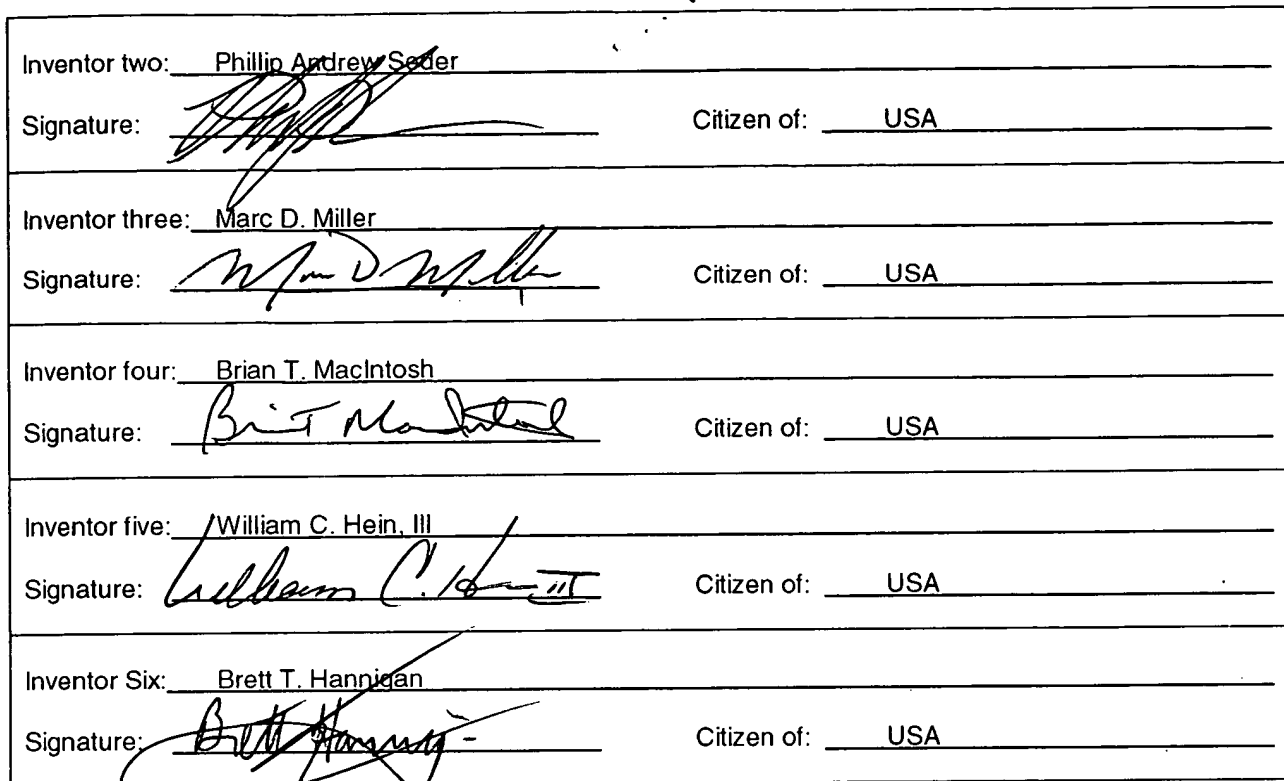 Inventor two: Phillip Andrew Seder
Signature: Citizen of: USA
Inventor three: Marc D. Miller
Signature: Marc D Miller Citizen of: USA
Inventor four: Brian T. MacIntosh
Signature: Brian T MacIntosh Citizen of: USA
Inventor five: William C. Hein, III
Signature: William C. Hein III Citizen of: USA
Inventor Six: Brett T. Hannigan
Signature: Brett Hannigan Citizen of: USA